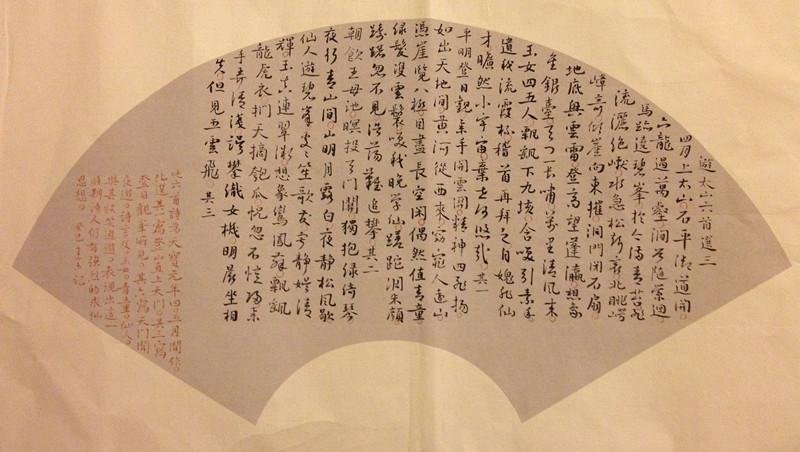 遊太山六首選三
四月上太山石平御道開。
六龍過萬壑澗谷隨縈迴。
馬跡遶碧峯於今滿青苔飛
流灑絕巘水急松聲哀北眺崿
嶂奇傾崖向東摧洞門閉石扇
地底興雲雷登高望蓬瀛想象
金銀臺天門一長嘯萬里清風來
玉女四五人飄颻下九垓含笑引素手
遺我流霞杯稽首再拜之自媿非仙
才曠然小宇宙棄世何悠哉。其一
平明登日觀舉手開雲關精神四飛揚
如出天地間黃河從西來窈窕入遠山
憑崖覽八極目盡長空閑偶然值青童
綠髮雙雲鬟笑我晚學仙蹉跎凋朱顏
躊躇忽不見浩蕩難追攀。其二
朝飲王母池暝投天門關獨抱綠綺琴
夜行青山間山明月露白夜靜松風歇
仙人遊碧峯處處笙歌發寂靜娛清
輝玉真連翠微想象鸞鳳舞飄颻
龍虎衣捫天摘匏瓜恍忽不憶歸舉
手弄清淺誤攀織女機明晨坐相
失但見五雲飛。其三
此六首詩為天寶元年四五月間作。
此選其一寫登山直上天門。其二寫
登日觀峯所見。其三寫天門關
夜遊。詩言及玉女青童仙人。
與其遨遊。表現出這一
時期詩人仍有強烈的求仙
思想。癸巳記